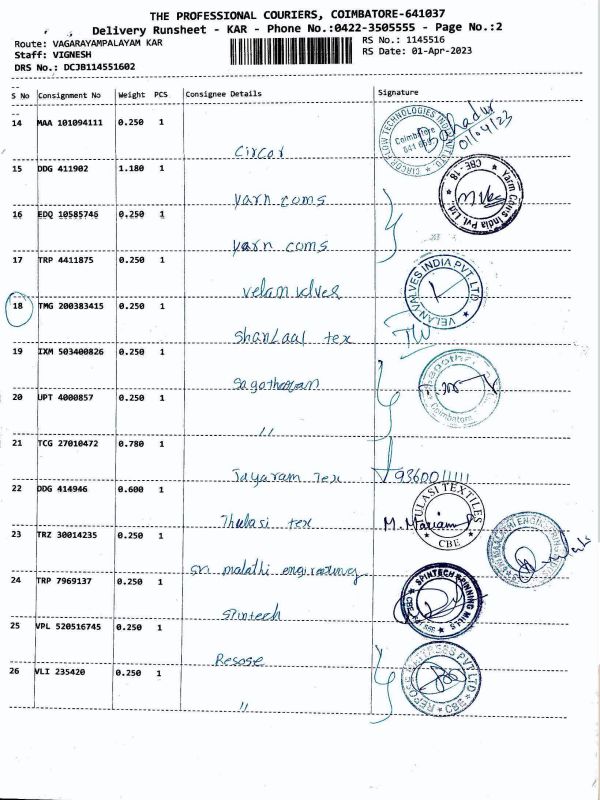 THE PROFESSIONAL COURIERS, COIMBATORE-641037
Delivery Runsheet - KAR - Phone No.:0422-3505555 - Page No.:2
Route: VAGARAYAMPALAYAM KAR
RS No.: 1145516
Staff: VIGNESH
RS Date: 01-Apr-2023
DRS No.: DCJB114551602
S No Consignment No Weight PCS Consignee Details Signature
14 MAA 101094111 0.250 1
Circor
Bahadur
01/04/23
15 DDG 411902 1.180 1
Yarn coms
16 EDQ 10585746 0.250 1
Yarn coms
17 TRP 4411875 0.250 1
Velan valves
VELAN VALVES INDIA PVT. LTD
18 TMG 200383415 0.250 1
Shanlaal tex
19 IXM 503400826 0.250 1
20 UPT 4000857 0.250 1
"
21 TCG 27010472 0.780 1
Jayaram Tex
22 DDG 414946 0.600 1
Thulasi tex
M. Mariam
TULASI TEXTILES
CBE
23 TRZ 30014235 0.250 1
Sri malathi engineering
24 TRP 7969137 0.250 1
Spintech
SPINTECH SPINNING MILLS
25 VPL 520516745 0.250 1
Resose
26 VLI 235420 0.250 1
"